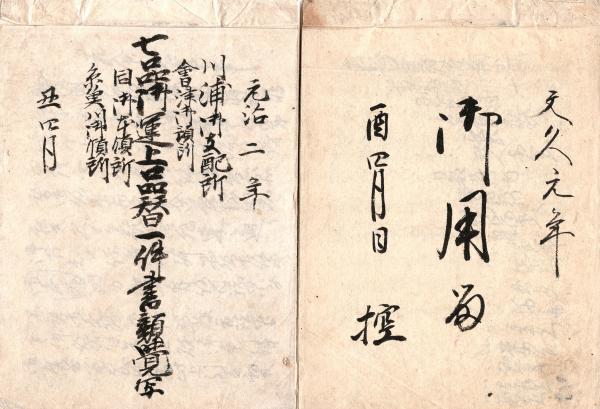 文久元年
御用留
酉四月日 控
元治二年
川浦御支配所
會津御預所
七品御運上品替一件書類覺写
同御本領所
糸魚川御領所
丑四月